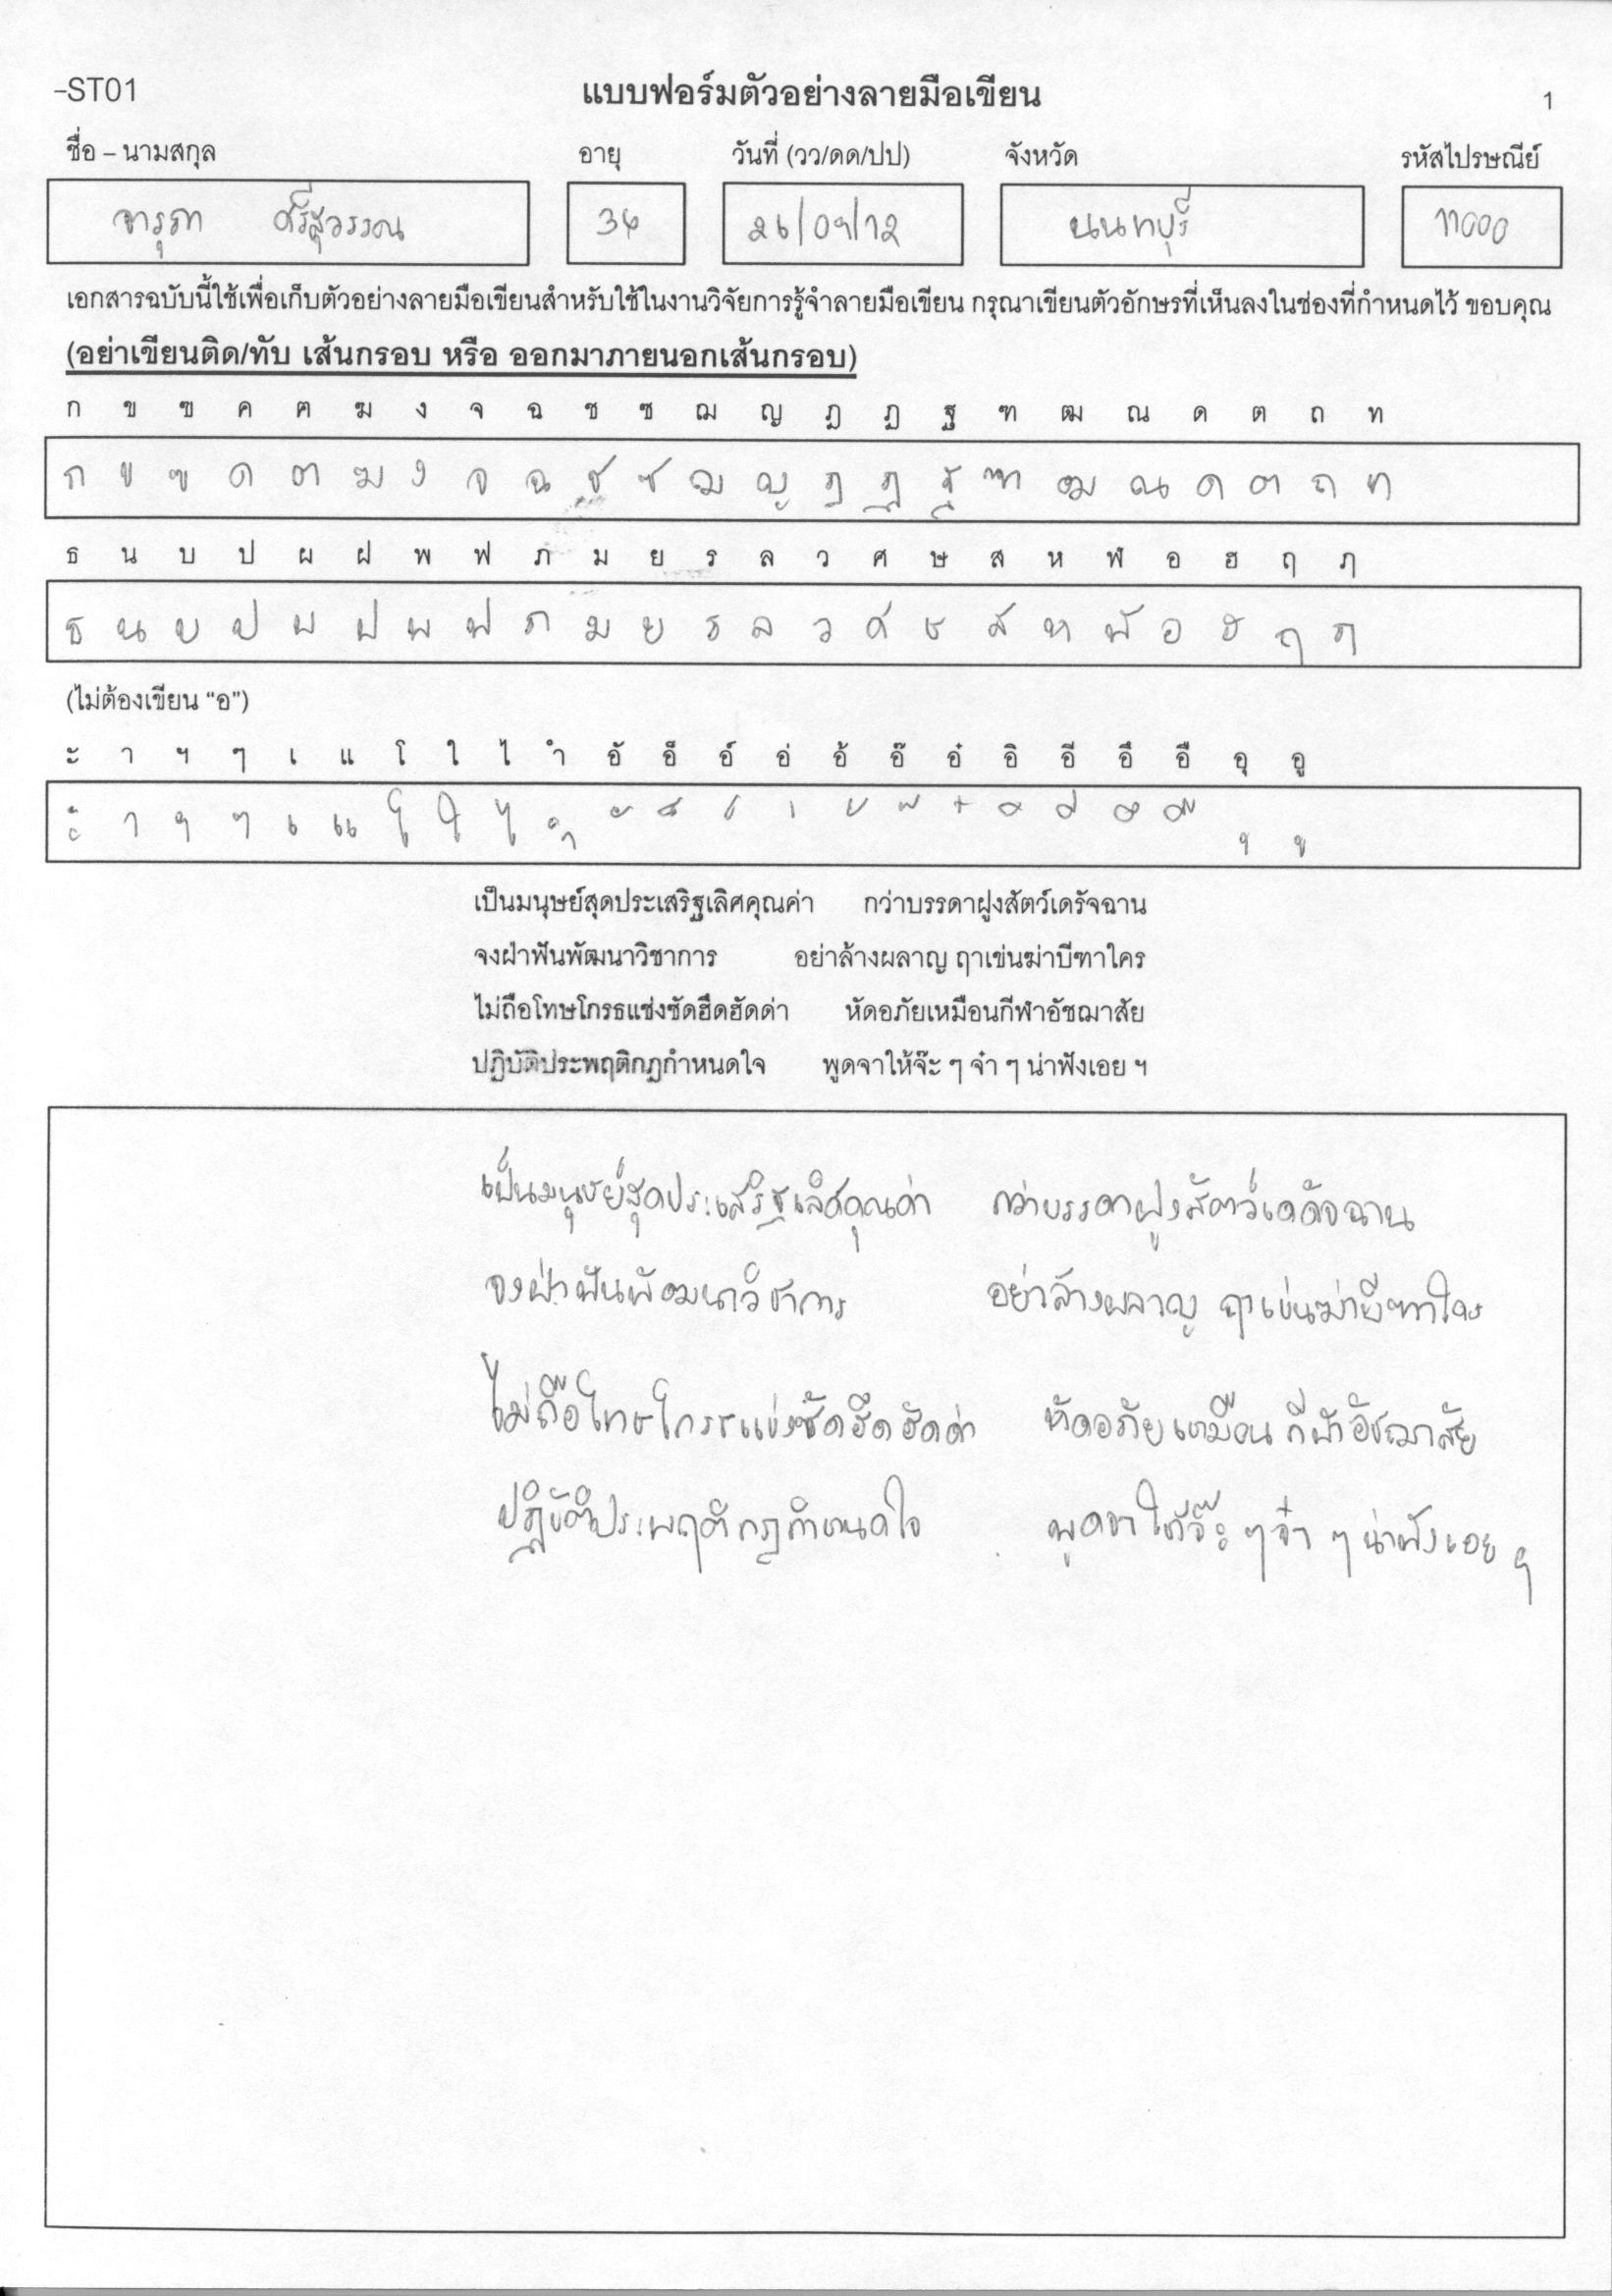 -ST01 แบบฟอร์มตัวอย่างลายมือเขียน 1
ชื่อ – นามสกุล อายุ วันที่ (วว/ดด/ปป) จังหวัด รหัสไปรษณีย์
จารุภา ศรีสุวรรณ 34 26/09/12 นนทบุรี 11000
เอกสารฉบับนี้ใช้เพื่อเก็บตัวอย่างลายมือเขียนสำหรับใช้ในงานวิจัยการรู้จำลายมือเขียน กรุณาเขียนตัวอักษรที่เห็นลงในช่องที่กำหนดไว้ ขอบคุณ
(อย่าเขียนติด/ทับ เส้นกรอบ หรือ ออกมาภายนอกเส้นกรอบ)
ก ข ฃ ค ฅ ฆ ง จ ฉ ช ซ ฌ ญ ฎ ฏ ฐ ฑ ฒ ณ ด ต ถ ท
ก ข ฃ ค ฅ ฆ ง จ ฉ ช ซ ฌ ญ ฎ ฏ ฐ ฑ ฒ ณ ด ต ถ ท
ธ น บ ป ผ ฝ พ ฟ ภ ม ย ร ล ว ศ ษ ส ห ฬ อ ฮ ฤ ฦ
ธ น บ ป ผ ฝ พ ฟ ภ ม ย ร ล ว ศ ษ ส ห ฬ อ ฮ ฤ ฦ
(ไม่ต้องเขียน “อ”)
ะ า ฯ ๆ เ แ โ ใ ไ ำ อั อ็ อ์ อ่ อ้ อ๊ อ๋ อิ อี อึ อื อุ อู
ะ า ฯ ๆ เ แ โ ใ ไ ำ ั ็ ์ ่ ้ ๊ ๋ ิ ี ึ ื ุ ู
เป็นมนุษย์สุดประเสริฐเลิศคุณค่า กว่าบรรดาฝูงสัตว์เดรัจฉาน
จงฝ่าฟันพัฒนาวิชาการ อย่าล้างผลาญ ฤาเข่นฆ่าบีฑาใคร
ไม่ถือโทษโกรธแช่งซัดฮึดฮัดด่า หัดอภัยเหมือนกีฬาอัชฌาสัย
ปฏิบัติประพฤติกฎกำหนดใจ พูดจาให้จ๊ะ ๆ จ๋า ๆ น่าฟังเอย ฯ
เป็นมนุษย์สุดประเสริฐเลิศคุณค่า กว่าบรรดาฝูงสัตว์เดรัจฉาน
จงฝ่าฟันพัฒนาวิชาการ อย่าล้างผลาญ ฤาเข่นฆ่าบีฑาใคร
ไม่ถือโทษโกรธแช่งซัดฮึดฮัดด่า หัดอภัยเหมือนกีฬาอัชฌาสัย
ปฏิบัติประพฤติกฎกำหนดใจ พูดจาให้จ๊ะ ๆ จ๋า ๆ น่าฟังเอย ฯ